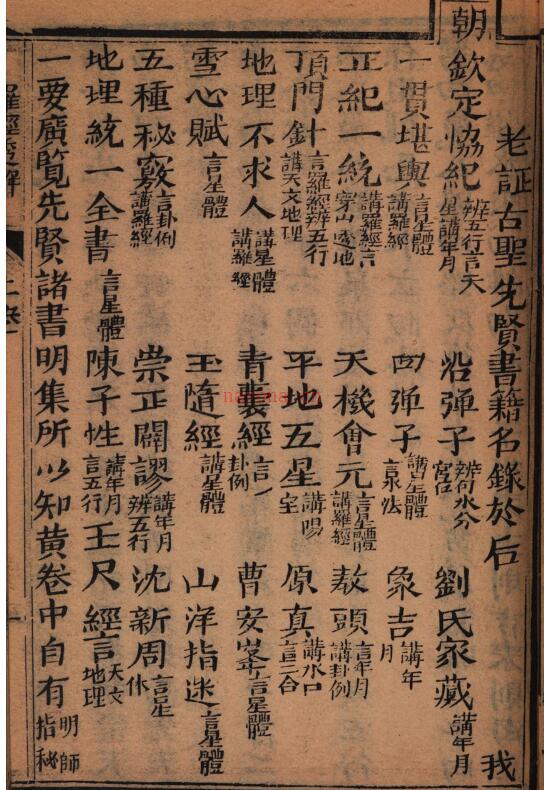 老証古聖先賢書籍名錄於后 我
朝欽定協紀 辨五行言天星講年月 沿弹子 辨何水分宮位 劉氏家藏 講年月
一貫堪輿 言星體講羅經 四弹子 講星體言泉法 象吉 講年月
正紀一統 講羅經言穿山透地 天機會元 言星體講羅經 敖頭 言年月講卦例
頂門針 言羅經辨五行講天文地理 平地五星 講陽宅 原真 講水口言三合
地理不求人 講星體講羅經 青囊經 言卦例 曹安峯 言星體
雪心賦 言星體 玉隨經 講星體 山洋指迷 言星體
五種秘竅 言卦例講羅經 崇正闢謬 講年月辨五行 沈新周 言星体
地理統一全書 言星體 陳子性 講年月言五行 玉尺經 言天文地理
一要廣覧先賢諸書明集所以知黃卷中自有 明師指秘